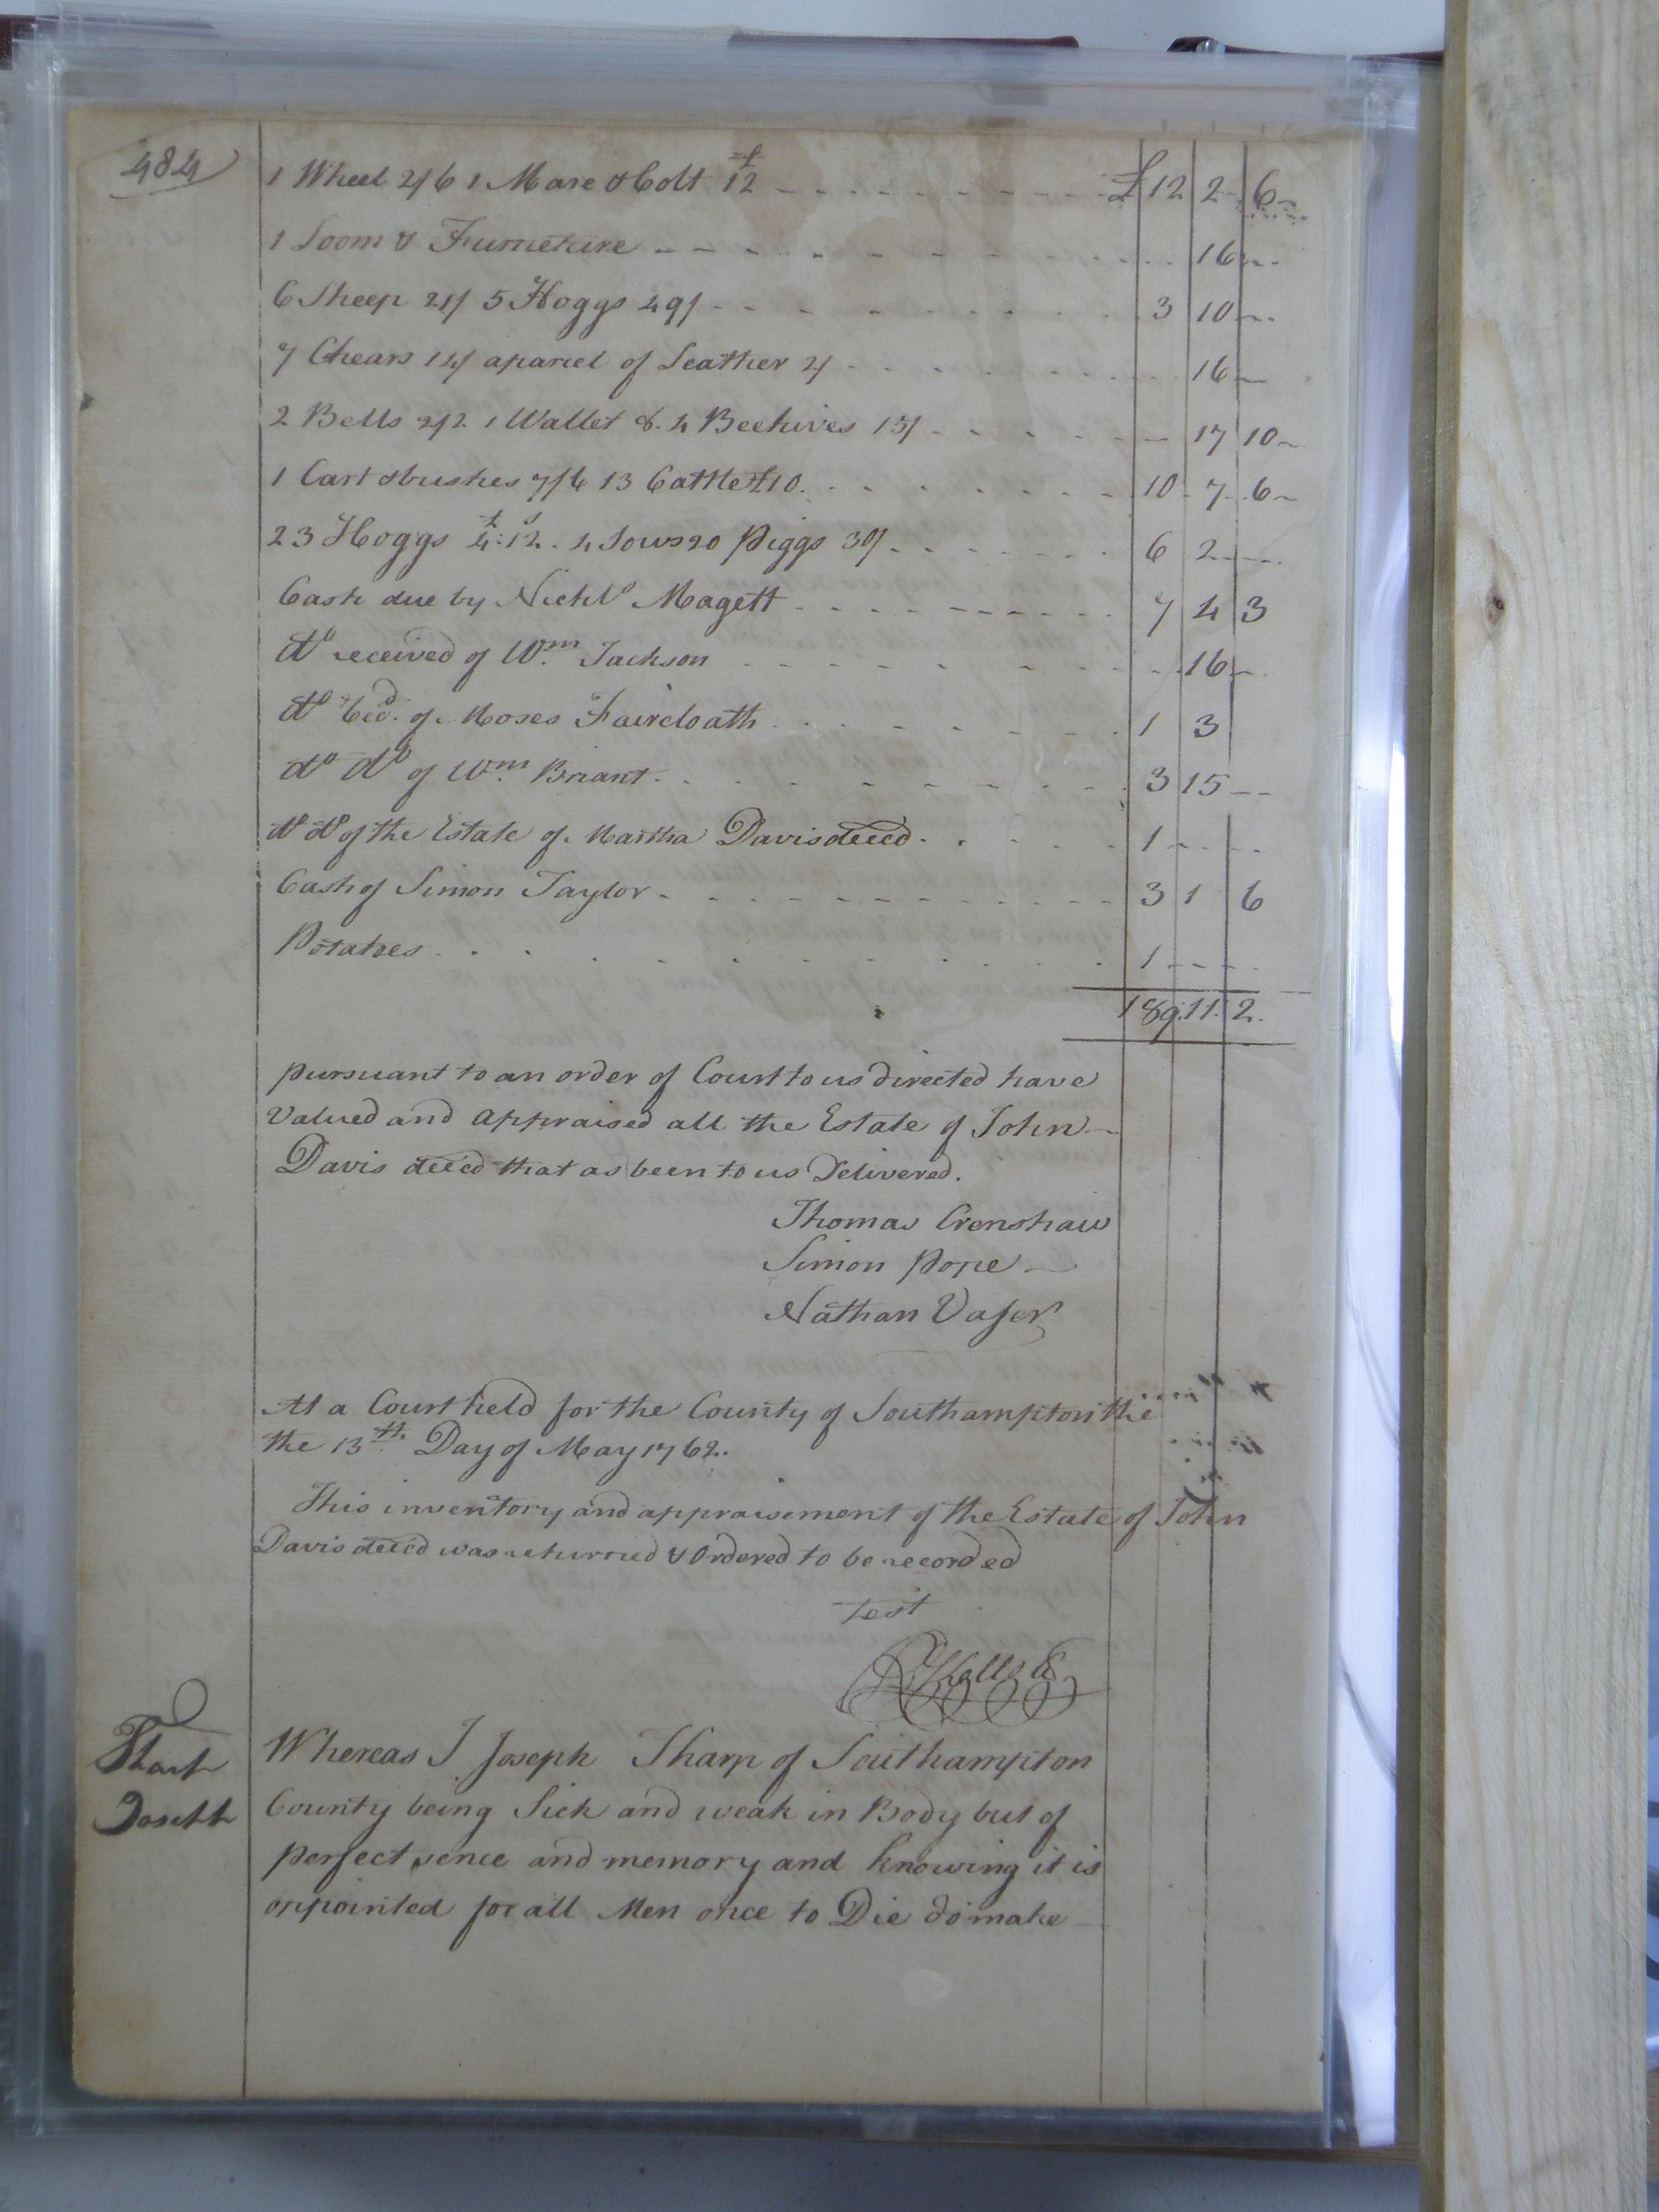 484
1 Wheel 2/6 1 Mare & Colt £12 £ 12 2 6
1 Loom & Furneture 16
6 Sheep 21/ 5 Hoggs 49/ 3 10
7 Chears 14/ a parcel of Leather 2/ 16
2 Bells 2/2 1 Wallet 8. 4 Beehives 15/ 17 10
1 Cart & bushes 7/6 13 Cattle £10. 10 7 6
23 Hoggs £4:12s. 4 Sows 20 Piggs 30/ 6 2
Cash due by Nichls Magett 7 4 3
do received of Wm. Jackson 16
do of Moses Faircloath 1 3
do do of Wm. Briant 3 15
do do of the Estate of Martha Davis deced 1
Cash of Simon Taylor 3 1 6
Potatoes 1
189.11.2.
pursuant to an order of Court to us directed have
Valued and appraised all the Estate of John
Davis deced that as been to us Delivered.
Thomas Crenshaw
Simon Pope
Nathan Vaser
At a Court held for the County of Southampton the
the 13th. Day of May 1762.
This inventory and appraisement of the Estate of John
Davis deced was returned & Ordered to be recorded
Test
R Kello
Sharp
Joseph
Whereas I Joseph Sharp of Southampton
County being Sick and weak in Body but of
perfect sence and memory and knowing it is
appointed for all Men once to Die do make